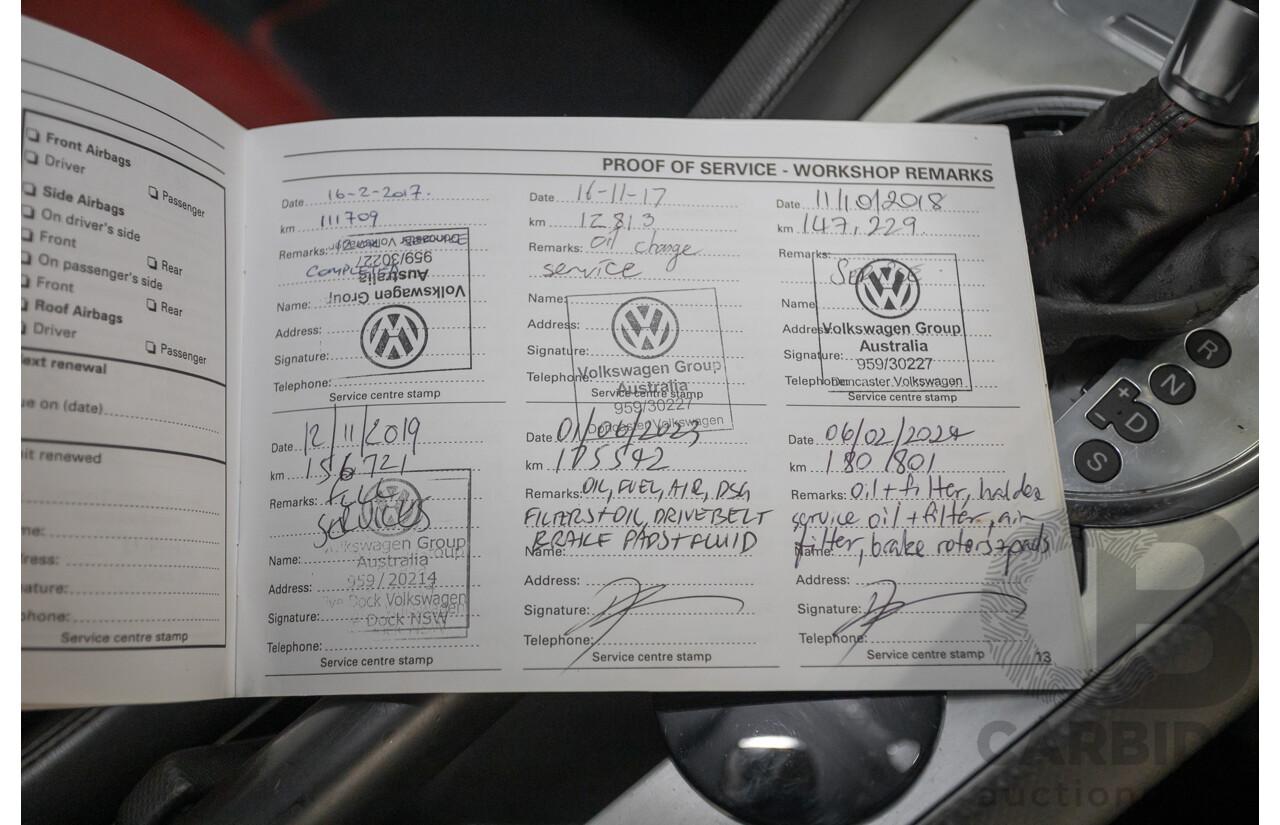 Front Airbags
Driver
Passenger
Side Airbags
On driver's side
Front
Rear
On passenger's side
Front
Rear
Roof Airbags
Driver
Passenger
ext renewal
ue on (date)
it renewed
me:
ress:
ature:
phone:
Service centre stamp
PROOF OF SERVICE - WORKSHOP REMARKS
Date 16-2-2017.
km 111709
Remarks:
COMPLETED
Name:
Address:
Signature:
Telephone:
Service centre stamp
Doncaster Volkswagen
959/30227
Australia
Volkswagen Group
Date 16-11-17
km 12813
Remarks: Oil change
service
Name:
Address:
Signature:
Telephone:
Service centre stamp
Volkswagen Group
Australia
959/30227
Doncaster Volkswagen
Date 11/10/2018
km 147,229
Remarks:
Service
Name:
Address:
Signature:
Telephone:
Service centre stamp
Volkswagen Group
Australia
959/30227
Doncaster Volkswagen
Date 12/11/2019
km 156721
Remarks: Full
services
Name:
Address:
Signature:
Telephone:
Service centre stamp
Volkswagen Group
Australia
959/20214
Dock Volkswagen
Dock NSW
Date 2023
km 175542
Remarks: OIL, FUEL, AIR, DSG
FILTERS+OIL, DRIVEBELT
BRAKE PADS+FLUID
Name:
Address:
Signature:
Telephone:
Service centre stamp
Date 06/02/2024
km 180/801
Remarks: Oil + filter, haldex
service oil + filter, air
filter, brake rotors+pads
Name:
Address:
Signature:
Telephone:
Service centre stamp
13
R
N
+
- D
S
CARBID
auction